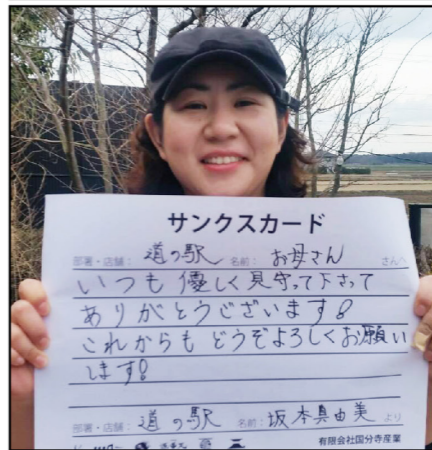 サンクスカード
部署・店舗: 道の駅 名前: お母さん さんへ
いつも優しく見守って下さって
ありがとうございます!
これからもどうぞよろしくお願い
します!
部署・店舗: 道の駅 名前: 坂本真由美 より
有限会社国分寺産業